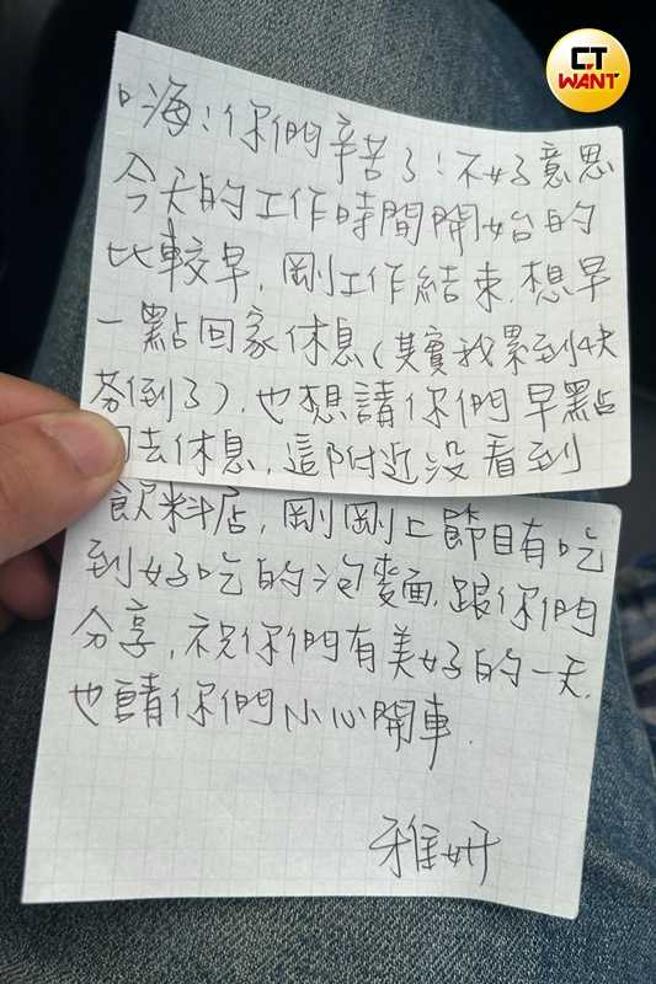 CT
WANT
嗨!你們辛苦了!不好意思
今天的工作時間開始的
比較早,剛工作結束.想早
一點回家休息(其實我累到快
昏倒了).也想請你們早點
回去休息,這附近沒看到
飲料店,剛剛上節目有吃
到好吃的泡麵.跟你們
分享,祝你們有美好的一天.
也請你們小心開車.
雅妍